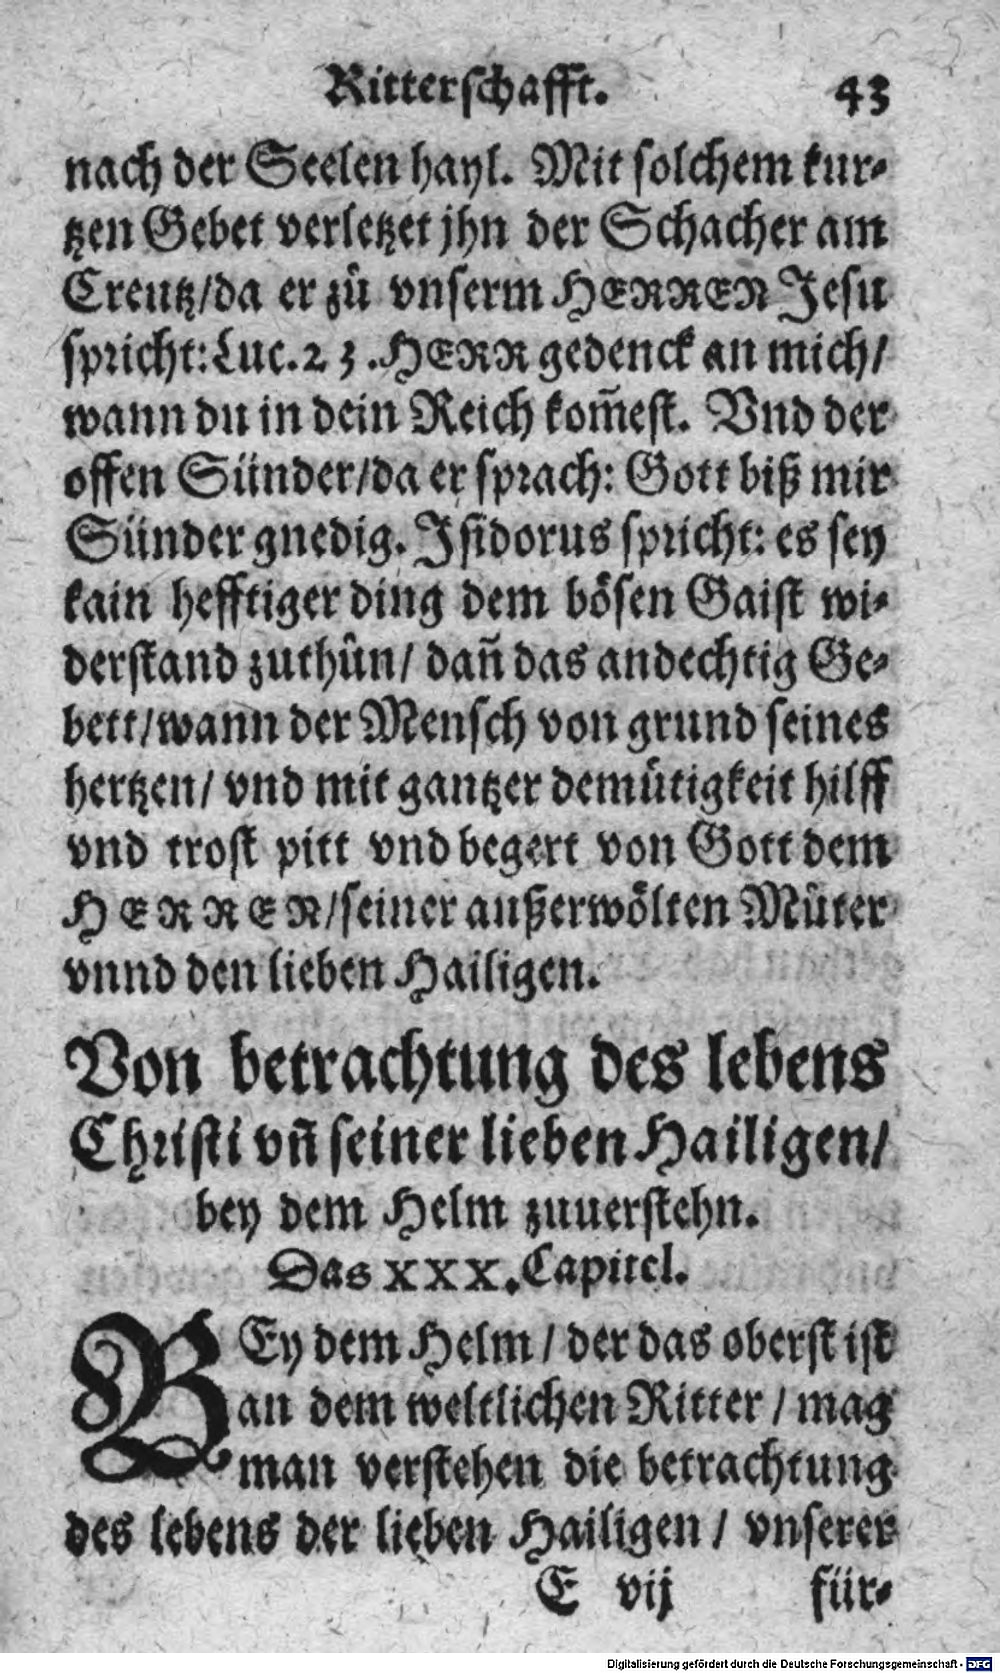 Ritterschafft. 43
nach der Seelen hayl. Mit solchem kur-
tzen Gebet verletzet jhn der Schacher am
Creutz/da er zů vnserm HERREN Jesu
spricht: Luc. 23. HERR gedenck an mich/
wann du in dein Reich kom̃est. Vnd der
offen Sünder/da er sprach: Gott biß mir
Sünder gnedig. Isidorus spricht: es sey
kain hefftiger ding dem bösen Gaist wi-
derstand zuthůn/ dañ das andechtig Ge-
bett/wann der Mensch von grund seines
hertzen/ vnd mit gantzer demütigkeit hilff
vnd trost pitt vnd begert von Gott dem
HERREN/seiner außerwölten Můter
vnnd den lieben Hailigen.
Von betrachtung des lebens
Christi vñ seiner lieben Hailigen/
bey dem Helm zuuerstehn.
Das XXX. Capitel.
BEy dem Helm / der das oberst ist
an dem weltlichen Ritter / mag
man verstehen die betrachtung
des lebens der lieben Hailigen / vnserer
E vij für-
Digitalisierung gefördert durch die Deutsche Forschungsgemeinschaft - DFG